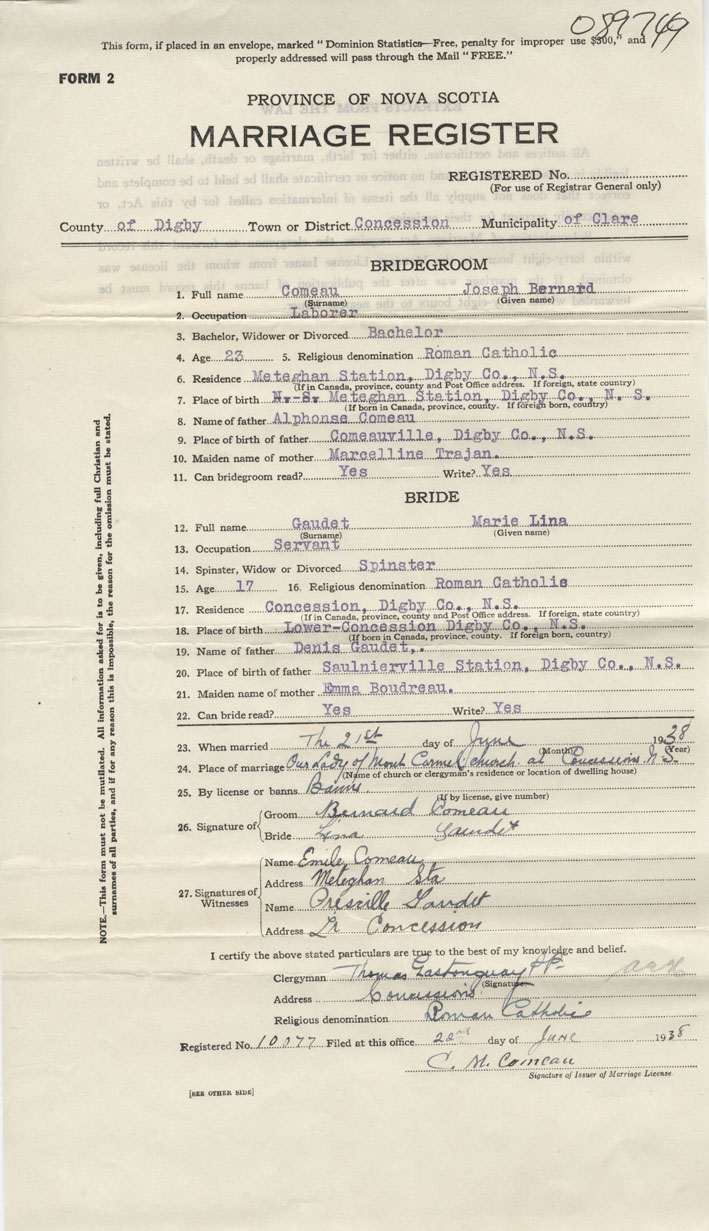 089749
This form, if placed in an envelope, marked "Dominion Statistics—Free, penalty for improper use $300," and
properly addressed will pass through the Mail "FREE."
FORM 2
PROVINCE OF NOVA SCOTIA
MARRIAGE REGISTER
REGISTERED No.
(For use of Registrar General only)
County of Digby Town or District Concession Municipality of Clare
BRIDEGROOM
1. Full name Comeau Joseph Bernard
(Surname) (Given name)
2. Occupation Laborer
3. Bachelor, Widower or Divorced Bachelor
4. Age 23 5. Religious denomination Roman Catholic
6. Residence Meteghan Station, Digby Co., N.S.
(If in Canada, province, county and Post Office address. If foreign, state country)
7. Place of birth N.-S. Meteghan Station, Digby Co., N. S.
(If born in Canada, province, county. If foreign born, country)
8. Name of father Alphonse Comeau
9. Place of birth of father Comeauville, Digby Co., N.S.
10. Maiden name of mother Marcelline Trajan.
11. Can bridegroom read? Yes Write? Yes
BRIDE
12. Full name Gaudet Marie Lina
(Surname) (Given name)
13. Occupation Servant
14. Spinster, Widow or Divorced Spinster
15. Age 17 16. Religious denomination Roman Catholic
17. Residence Concession, Digby Co., N.S.
(If in Canada, province, county and Post Office address. If foreign, state country)
18. Place of birth Lower-Concession Digby Co., N.S.
(If born in Canada, province, county. If foreign born, country)
19. Name of father Denis Gaudet,.
20. Place of birth of father Saulnierville Station, Digby Co., N.S.
21. Maiden name of mother Emma Boudreau.
22. Can bride read? Yes Write? Yes
23. When married The 21st day of June 1938
(Month) (Year)
24. Place of marriage Our Lady of Mount Carmel church at Concession N.S.
(Name of church or clergyman's residence or location of dwelling house)
25. By license or banns Banns
(If by license, give number)
26. Signature of
Groom Bernard Comeau
Bride Lina Gaudet
27. Signatures of Witnesses
Name Emile Comeau
Address Meteghan Sta
Name Prescille Gaudet
Address Lr Concession
NOTE.—This form must not be mutilated. All information asked for is to be given, including full Christian and
surnames of all parties, and if for any reason this is impossible, the reason for the omission must be stated.
I certify the above stated particulars are true to the best of my knowledge and belief.
Clergyman Thomas Gastonguay P.P.
(Signature)
Address Concession
Religious denomination Roman Catholic
Registered No. 10077 Filed at this office 22nd day of June 1938
C. M. Comeau
Signature of Issuer of Marriage License.
[SEE OTHER SIDE]